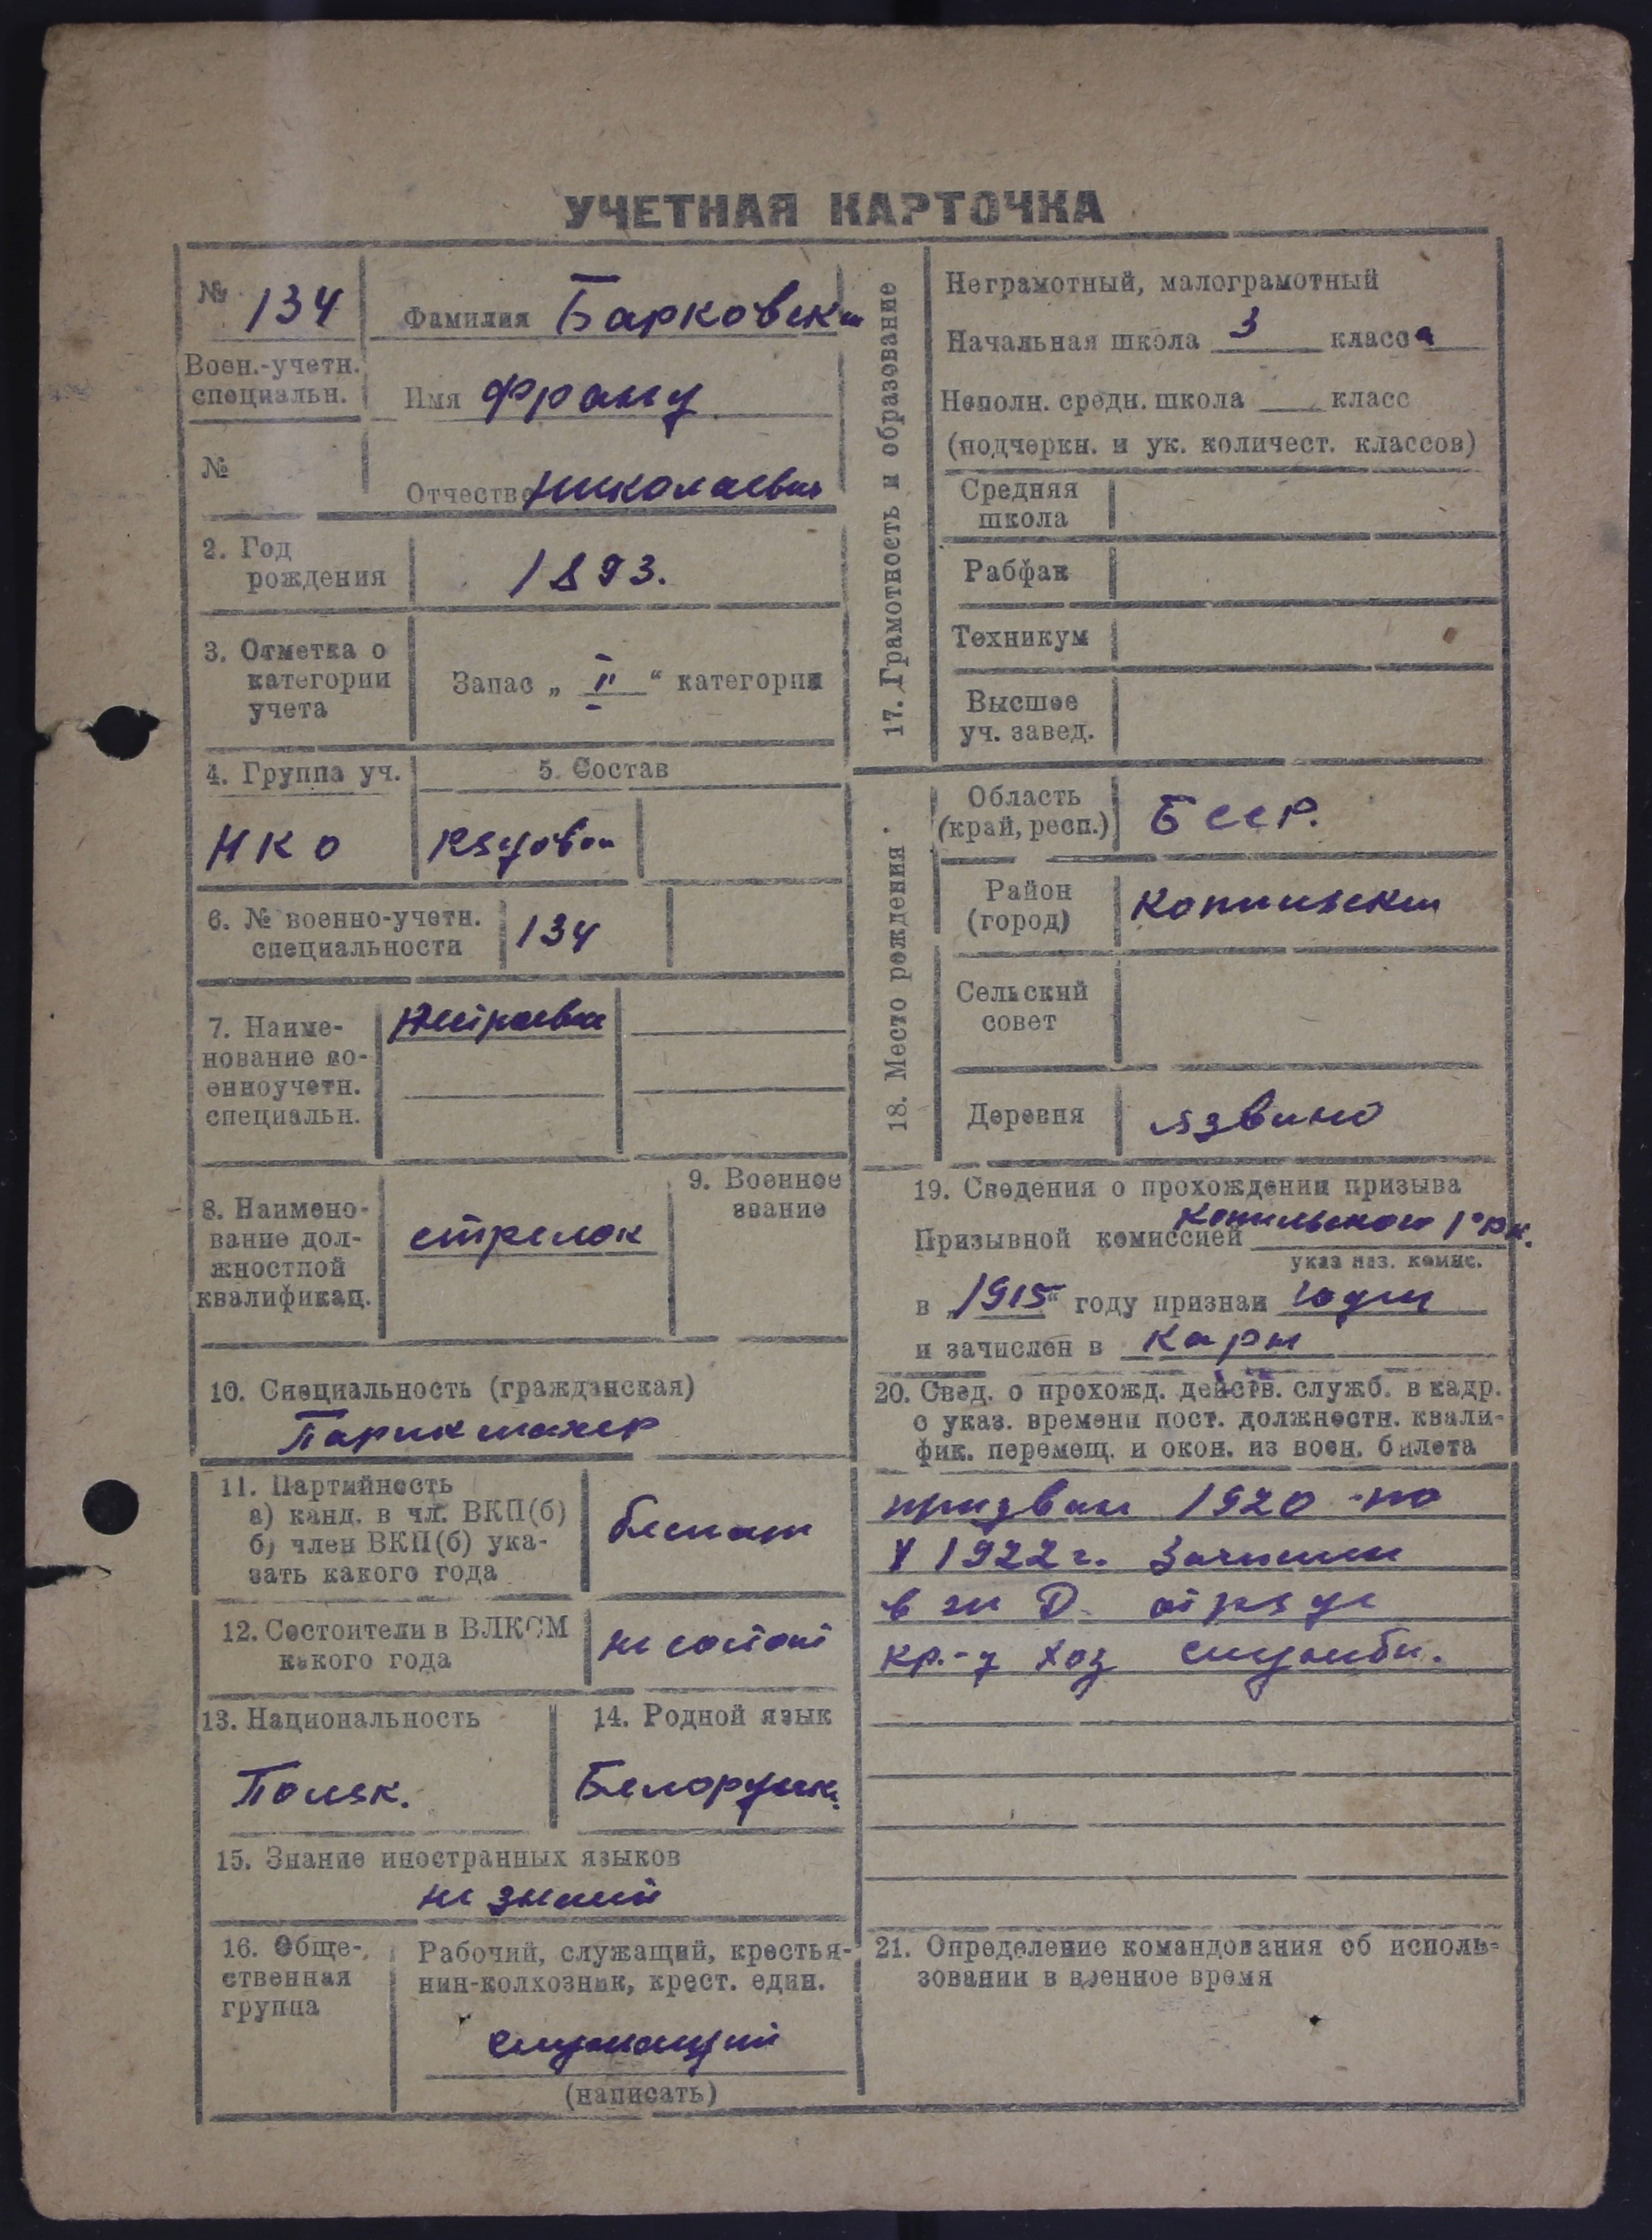 УЧЕТНАЯ КАРТОЧКА
№ 134
Фамилия Барковски
Воен.-учетн.
специальн.
Имя Франц
№
Отчество Николаевич
2. Год
рождения
1893.
3. Отметка о
категории
учета
Запас „ II “ категории
4. Группа уч.
5. Состав
НКО
Рядовой
6. № военно-учетн.
специальности
134
7. Наиме-
нование во-
енноучетн.
специальн.
8. Наимено-
вание дол-
жностной
квалификац.
стрелок
9. Военное
звание
10. Специальность (гражданская)
Парикмахер
11. Партийность
а) канд. в чл. ВКП(б)
б) член ВКП(б) ука-
зать какого года
беспат
12. Состоители в ВЛКСМ
какого года
не состоит
13. Национальность
Поляк.
14. Родной язык
Белорусск.
15. Знание иностранных языков
не знает
16. Обще-
ственная
группа
Рабочий, служащий, крестья-
нин-колхозник, крест. един.
служащий
(написать)
17. Грамотность и образование
Неграмотный, малограмотный
Начальная школа 3 класса
Неполн. средн. школа класс
(подчеркн. и ук. количест. классов)
Средняя
школа
Рабфак
Техникум
Высшее
уч. завед.
18. Место рождения.
Область
(край, респ.)
БССР.
Район
(город)
Копыльский
Сельский
совет
Деревня
Язвино
19. Сведения о прохождении призыва
Призывной комиссией Копыльского
указ наз. комис.
в 1915 году признан годен
и зачислен в
20. Свед. о прохожд. действ. служб. в кадр.
с указ. времени пост. должностн. квали-
фик. перемещ. и окон. из воен. билета
призван 1920 по
V 1922 г. Зачислен
в ж Д. отряде
кр-ц хоз службы.
21. Определение командования об исполь-
зовании в военное время